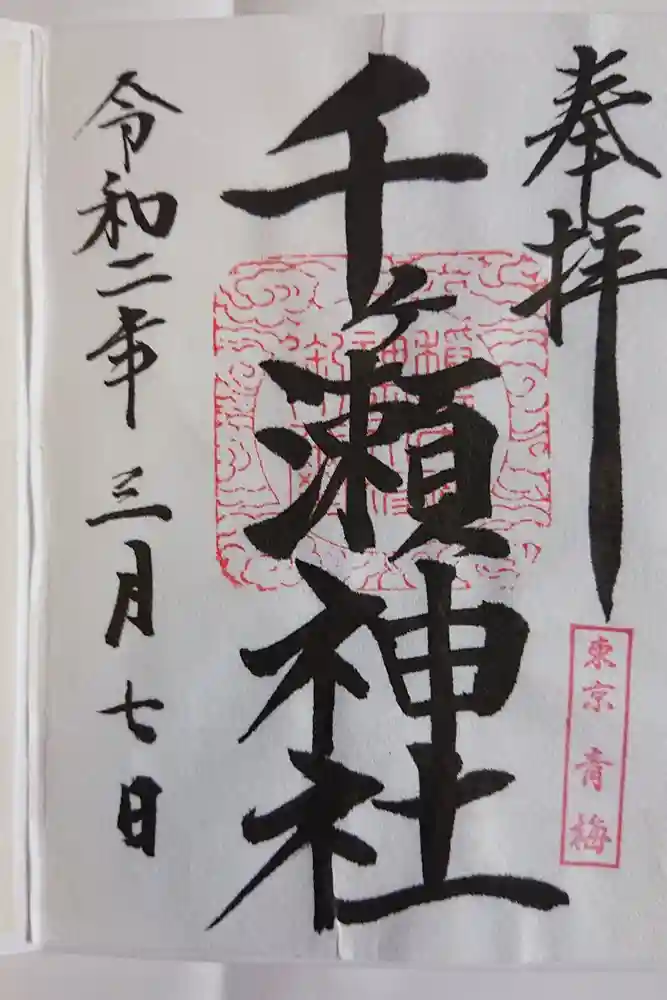 奉拝
東京 青梅
千ヶ瀬神社
令和二年 三月 七日